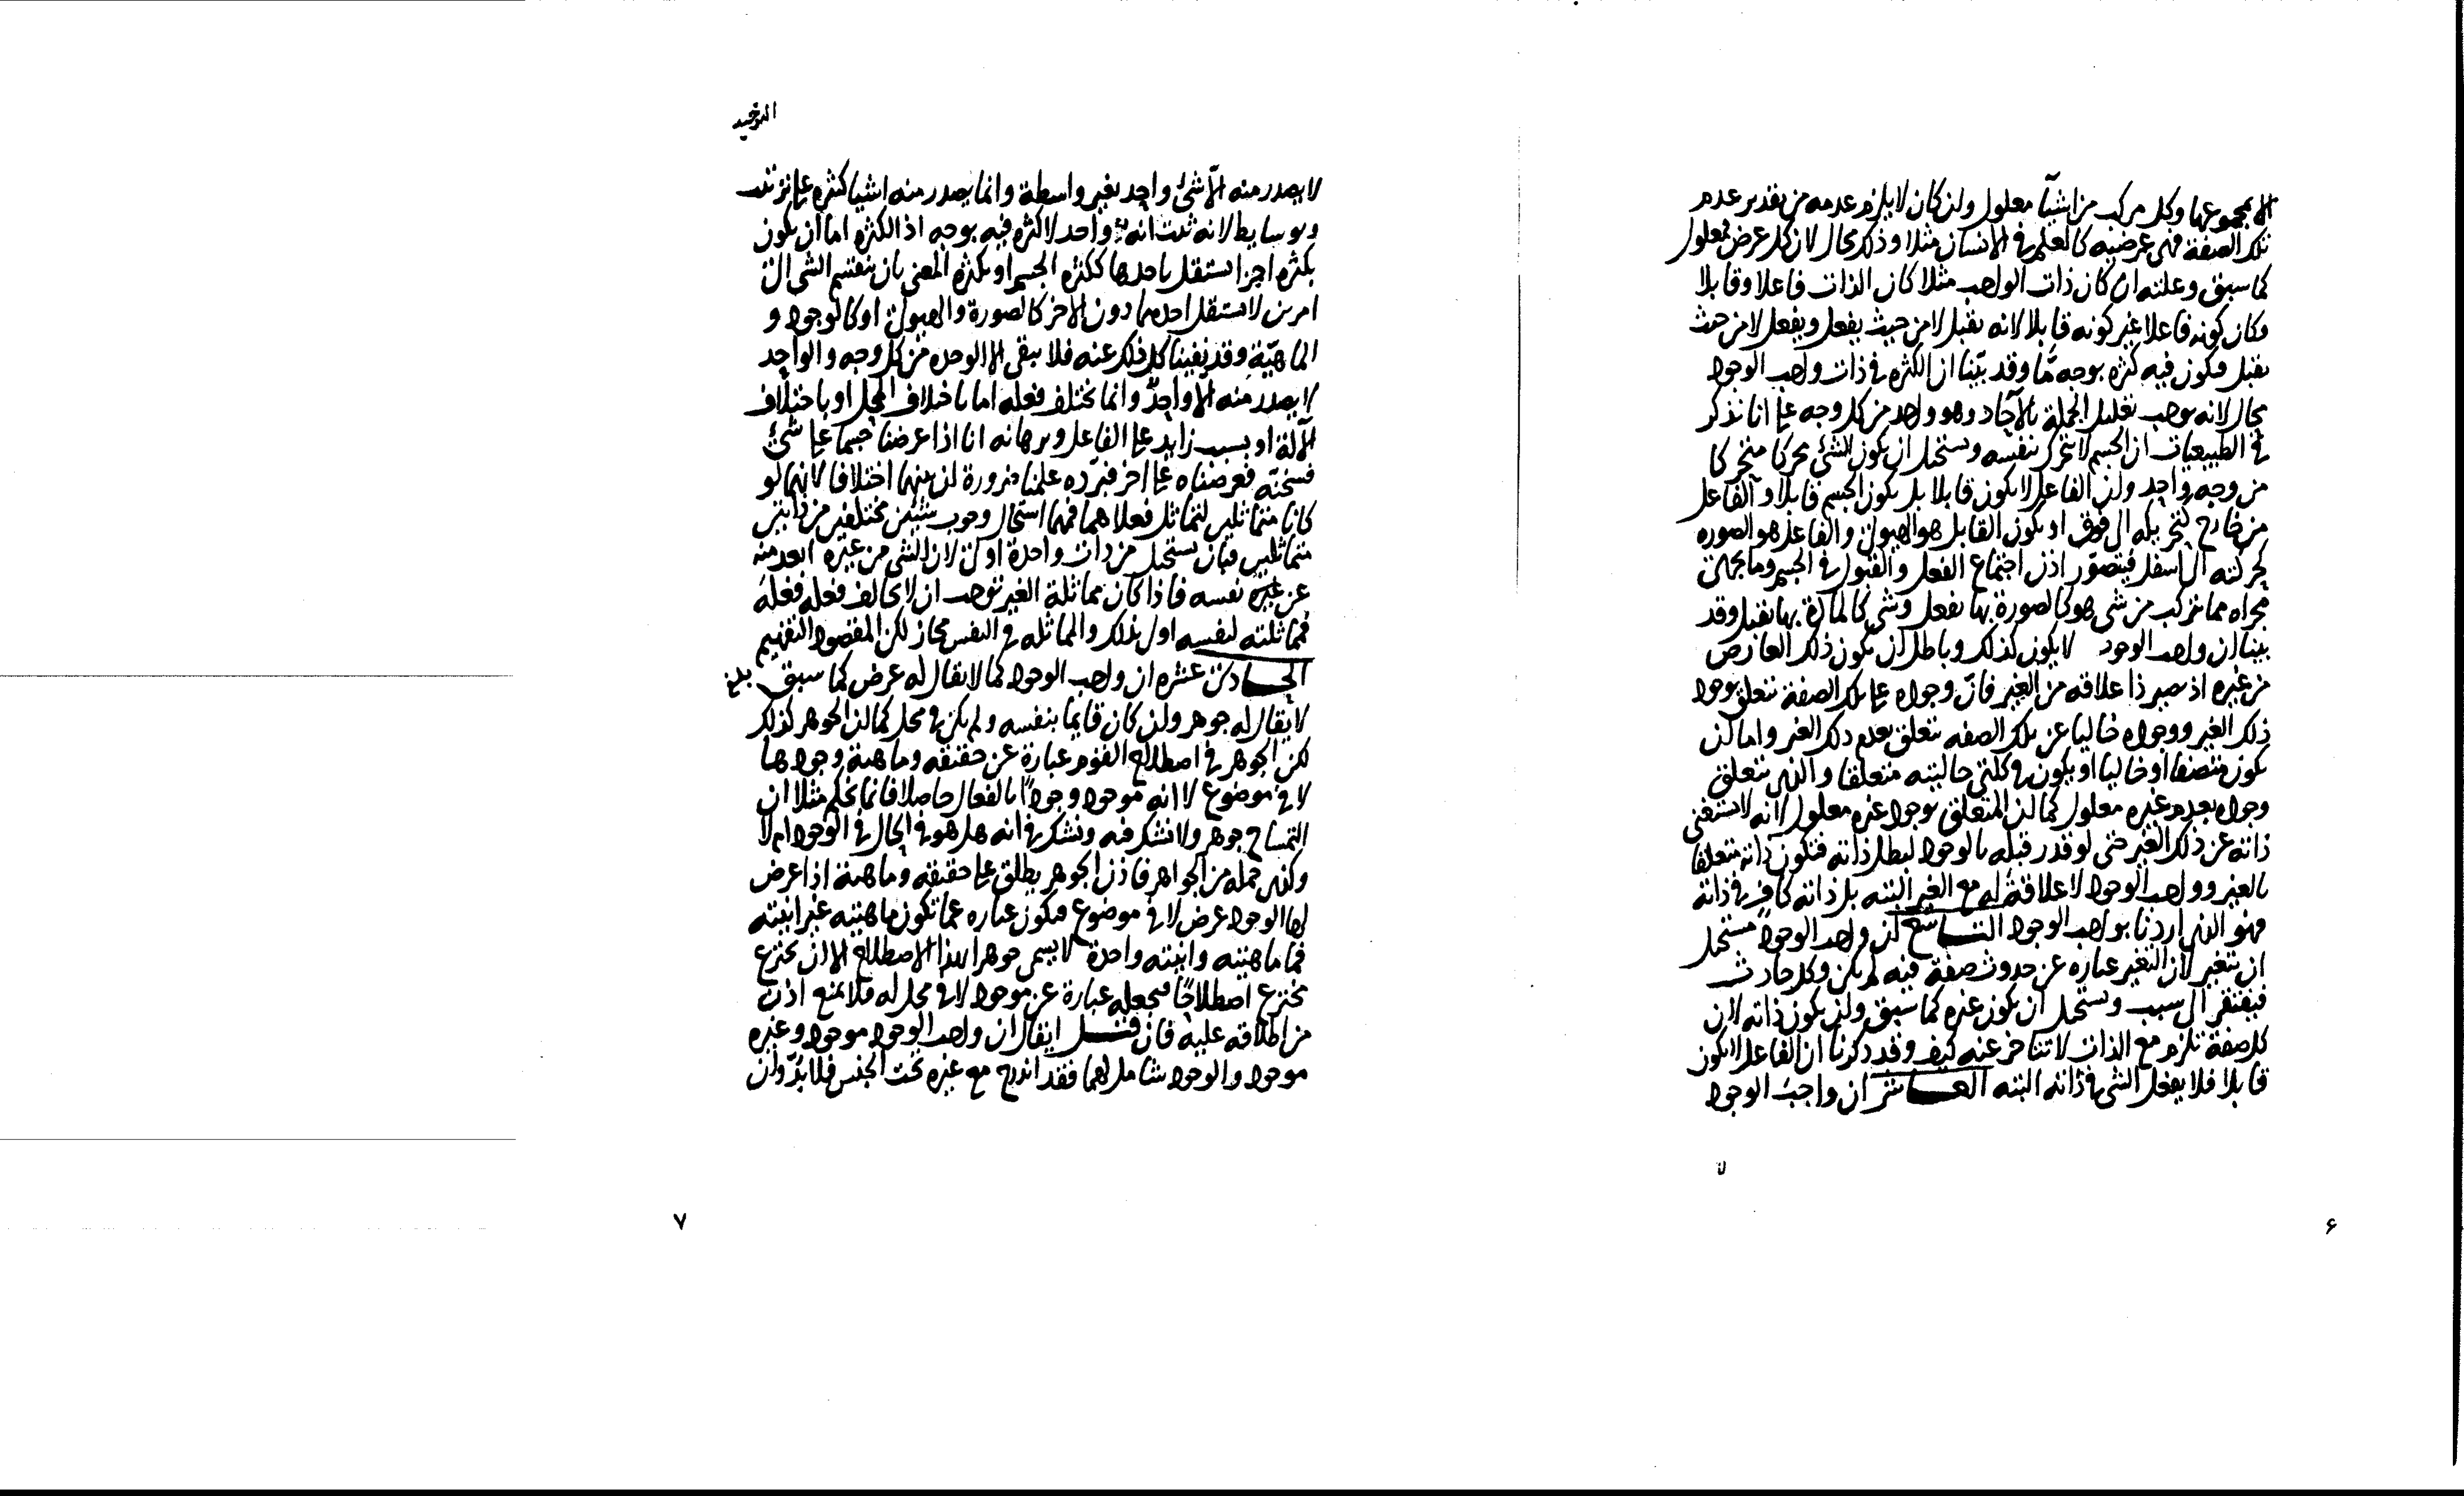 الا بمجموعها وكل مركب من اشيآ معلول ولن كان لا يلزم عدمه من تقدير عدم
تلك الصفة فهى عرضيه كالعلم فى الانسان مثلا وذلك محال لان كل عرض معلول
كما سبق وعلته ان كان ذات الواجب مثلا كان الذات فاعلا وقابلا
وكان كونه فاعلا غير كونه قابلا لانه يقبل لا من حيث يفعل ويفعل لا من حيث
يقبل فيكون فيه كثره بوجه مّا وقد بيّنا ان الكثره فى ذات واجب الوجود
محال لانه يوجب تعليل الجملة بالآحاد وهو واحد من كل وجه على انا نذكر
فى الطبيعيات ان الجسم لا يتحرك بنفسه ويستحيل ان يكون الشئ محركا متحركا
من وجه واحد ولن الفاعل لا يكون قابلا بل يكون الجسم قابلا والفاعل
من خارج لتحريكه الى فوق او يكون القابل هو الهيولى والفاعل هو الصوره
كحركته الى اسفل فيتصوّر اذن اجتماع الفعل والقبول فى الجسم وما يجرى
مجراه مما يتركب من شى هو كالصورة بها يفعل وشى كالمادة بها يقبل وقد
بينا ان واجب الوجود لا يكون كذلك وباطل ان يكون ذلك العارض
من غيره اذ يصير ذا علاقه من الغير فانّ وجوده على تلك الصفة يتعلق بوجود
ذلك الغير ووجوده خاليا عن تلك الصفه يتعلق بعدم ذلك الغير واما لن
يكون متصفا او خاليا او يكون فى كلتى حالتيه متعلقا والذى يتعلق
وجوده بعدم غيره معلول كما لن المتعلق بوجود غيره معلول لانه لا يستغنى
ذاته عن ذلك الغير حتى لو قدر قبله بالوجود لبطل ذاته فتكون ذاته متعلقا
بالغير وواجب الوجود لا علاقة له مع الغير البته بل ذاته كاف فى ذاته
فهو الذى اردنا بواجب الوجود التاسع لن واجب الوجود يستحيل
ان يتغير لان التغير عباره عن حدوث صفة فيه لم يكن وكل حادث
فيفتقر الى سبب ويستحيل ان يكون غيره كما سبق ولن يكون ذاته لان
كل صفة تلزم مع الذات لا تتاخر عنه كيف وقد ذكرنا ان الفاعل لا يكون
قابلا فلا يفعل الشى فى ذاته البته العاشر ان واجب الوجود
لا
۶
التوحيد
لا يصدر منه الّا شئ واحد بغير واسطة وانما يصدر منه اشيا كثره على ترتيب
وبوسايط لانه ثبت انه واحد لا كثره فيه بوجه اذ الكثره اما ان يكون
بكثره اجزا يستقل باحدها ككثره الجسم او بكثره المعنى بان ينقسم الشى الى
امرين لا يستقل احدهما دون الاخر كالصورة والهيولى او كالوجود و
الماهيّة وقد نفينا كل ذلك عنه فلا يبقى الا الوحده من كل وجه والواحد
لا يصدر منه الا واحدٌ وانما يختلف فعله اما باختلاف المحل او باختلاف
الآلة او بسبب زايد على الفاعل وبرهانه انا اذا عرضنا جسما على شئ
فسخنّه فعرضناه على اخر فبرّده علمنا ضرورة لن بينهما اختلافا لانهما لو
كانا متماثلين لتماثل فعلاهما فمهما استحال وجوب شيئين مختلفين من ذاتين
متماثلين فبان يستحيل من ذات واحدة اولى لان الشى من غيره ابعد منه
عن نفسه فاذا كان مماثلة الغير توجب ان لا يخالف فعله فعلهُ
فمماثلته لنفسه اولى بذلك والمماثله فى النفس مجاز لكن المقصود التفهيم
الحادى عشره ان واجب الوجود كما لا يقال له عرض كما سبق
بلغ
لا يقال له جوهر ولن كان قايما بنفسه ولم يكن فى محل كما لن الجوهر كذلك
لكن الجوهر فى اصطلاح القوم عبارة عن حقيقه وماهية وجودها
لا فى موضوع لا انه موجود وجوداً بالفعل حاصلا فانما نحكم مثلا ان
التمساح جوهر ولا نشك فيه ونشك فى انه هل هو فى الحال فى الوجود ام لا
وكذى جمله من الجواهر فاذن الجوهر يطلق على حقيقه وماهية اذا عرض
لها الوجود عرض لا فى موضوع فيكون عباره عما تكون ماهيته غير انيته
فما ماهيته وانيته واحدة لا يسمى جوهرا بهذا الاصطلاح الا ان يخترع
مخترع اصطلاحًا فيجعله عبارة عن موجود لا فى محل له فلا يمنع اذن
من اطلاقه عليه فان قيل ايقال ان واجب الوجود موجود وغيره
موجود والوجود شامل لهما فقد اندرج مع غيره تحت الجنس فلا بدّ ولن
۷